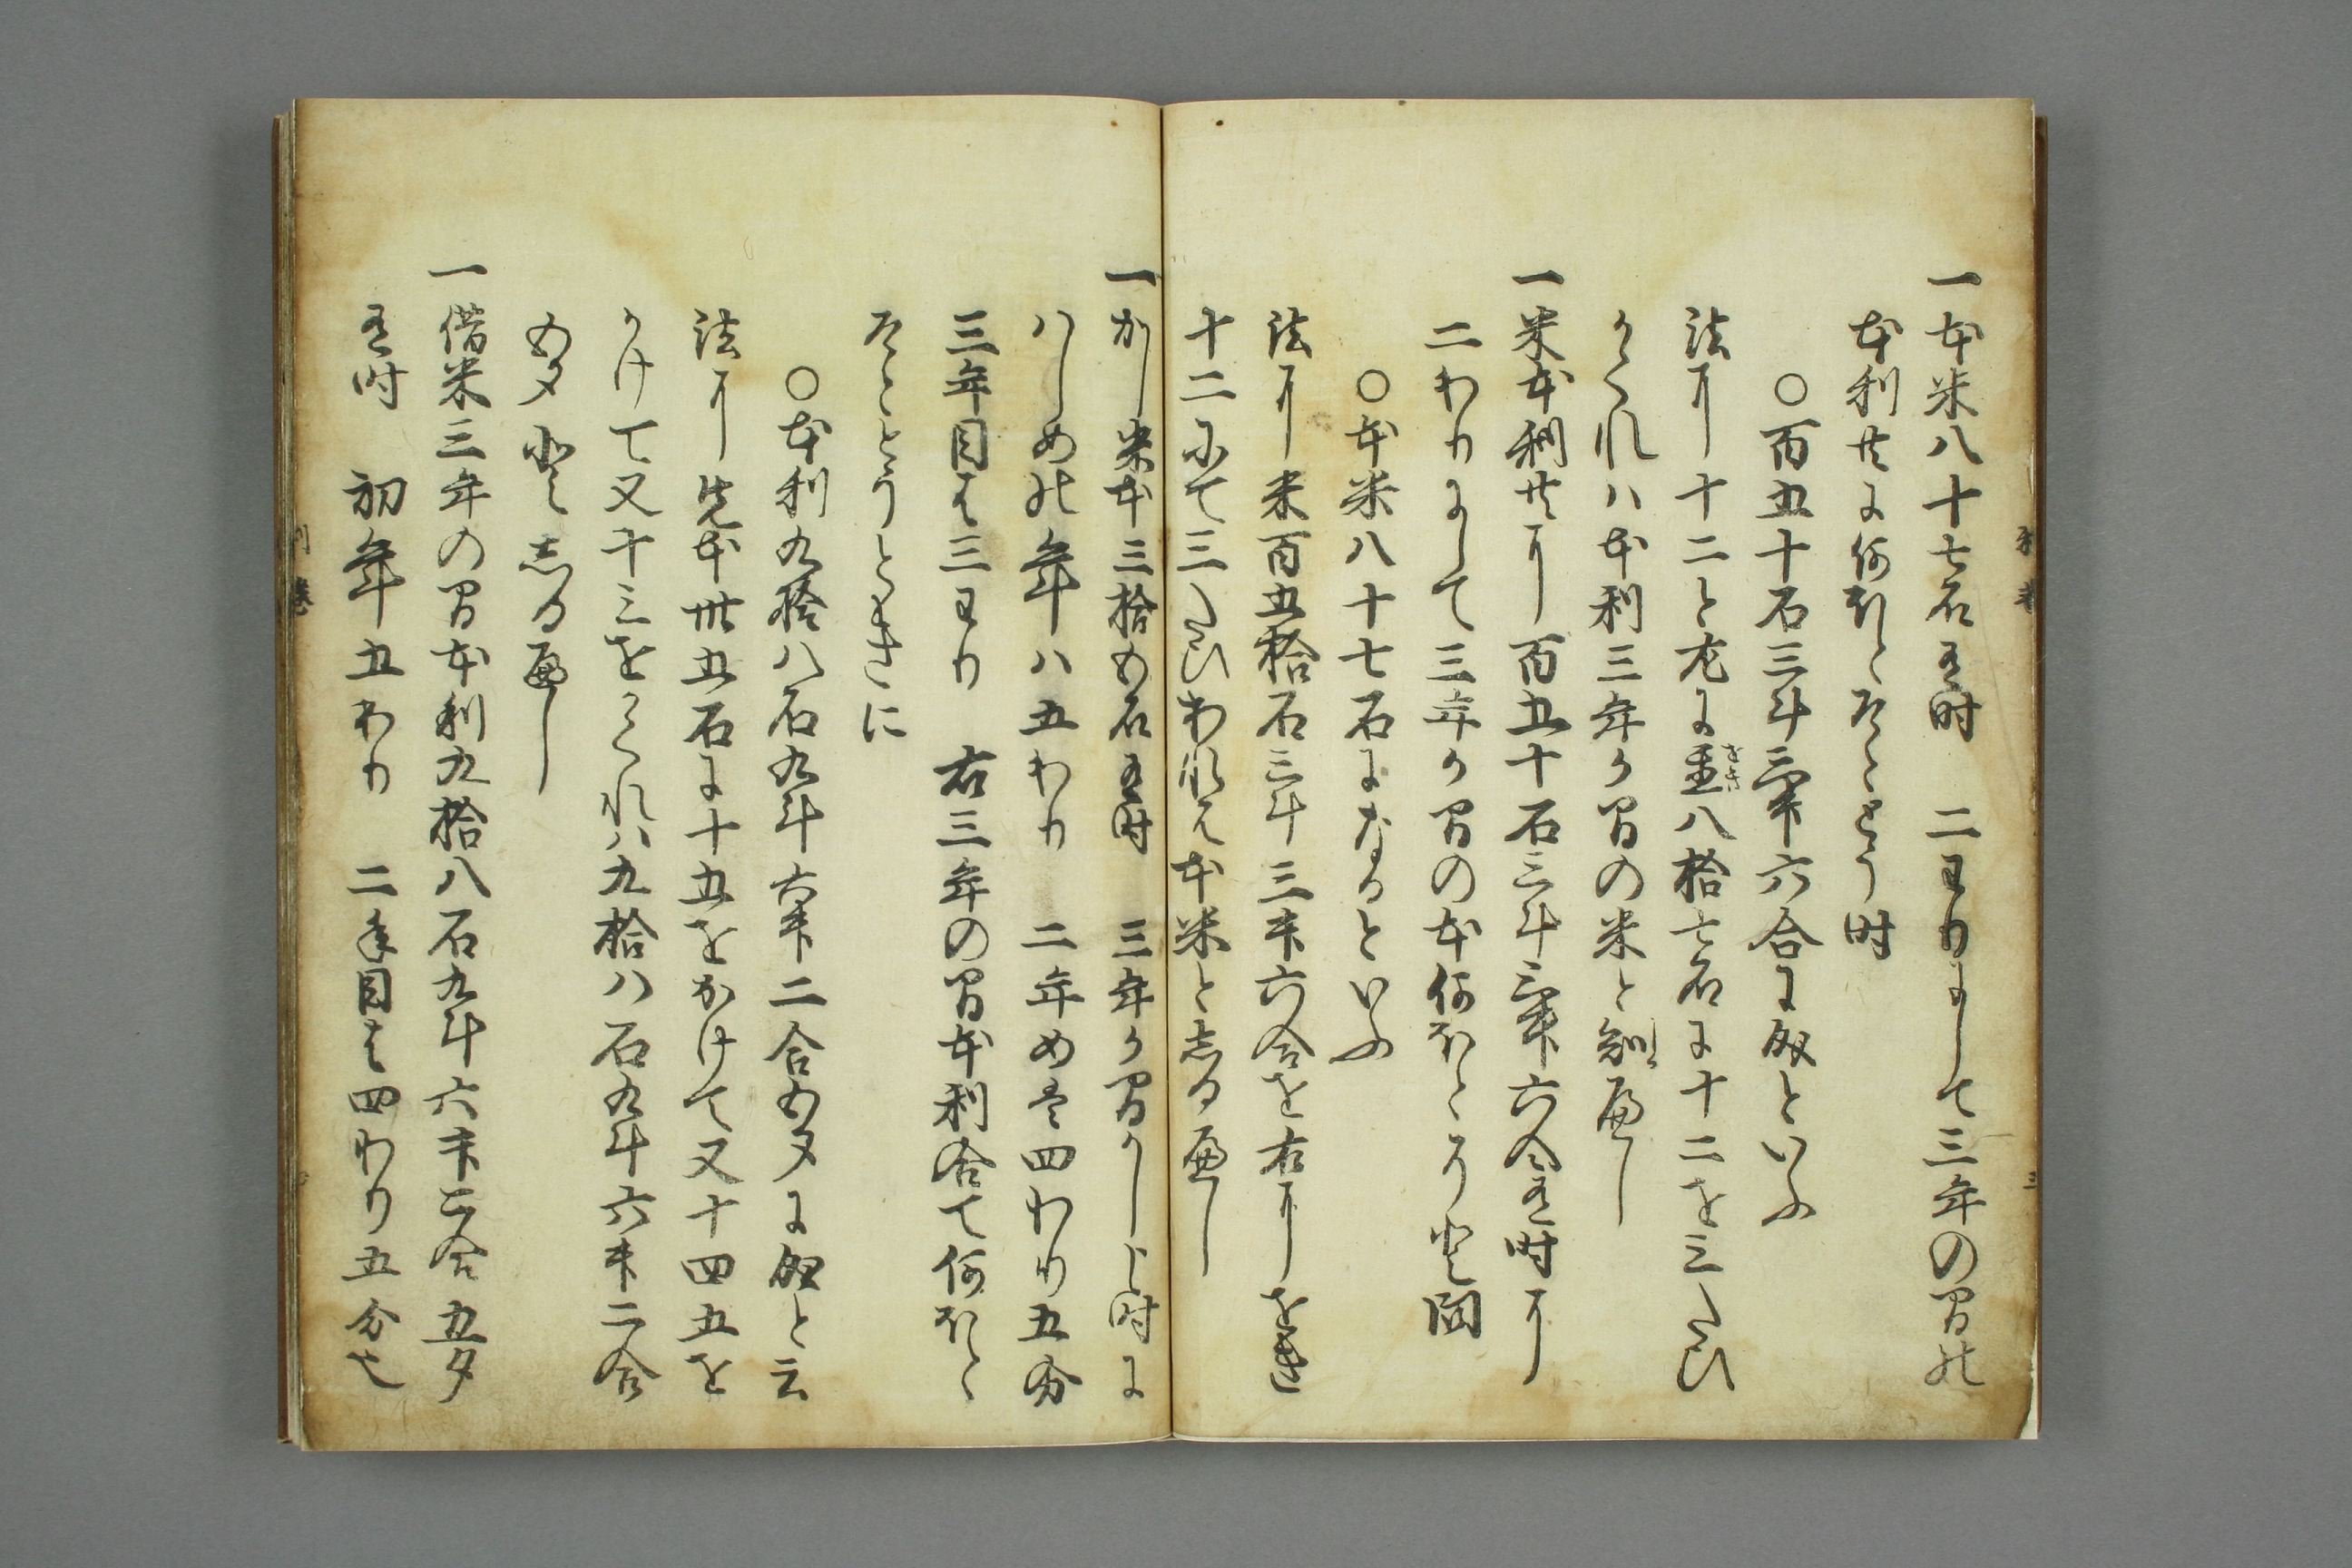 一本米八十七石有時　二わりにして三年の間の
本利共に何ほとそととう時
○百五十石三斗三升六合に成といふ
法に十二と左に置八拾七石に十二を三たひ
かくれハ本利三年か間の米と知へし
一米本利共に百五十石三斗三升六合有時に
二わりにして三年か間の本何ほとそと問
○本米八十七石になるといふ
法に米百五拾石三斗三升六合を右にをき
十二にて三たひわれは本米としるへし
一かし米本三拾五石有時　三年か間かし申時に
はしめの年ハ五わり　二年めは四わり五分
三年目は三わり　右三年の間本利合て何ほと
そととうときに
○本利九拾八石九斗六升二合五夕に成と云
法に先本卅五石に十五をかけて又十四五を
かけて又十三をかくれハ九拾八石九斗六升二合
五夕としるへし
一借米三年の間本利九拾八石九斗六升二合五夕
有時　初年五わり　二年目は四わり五分也